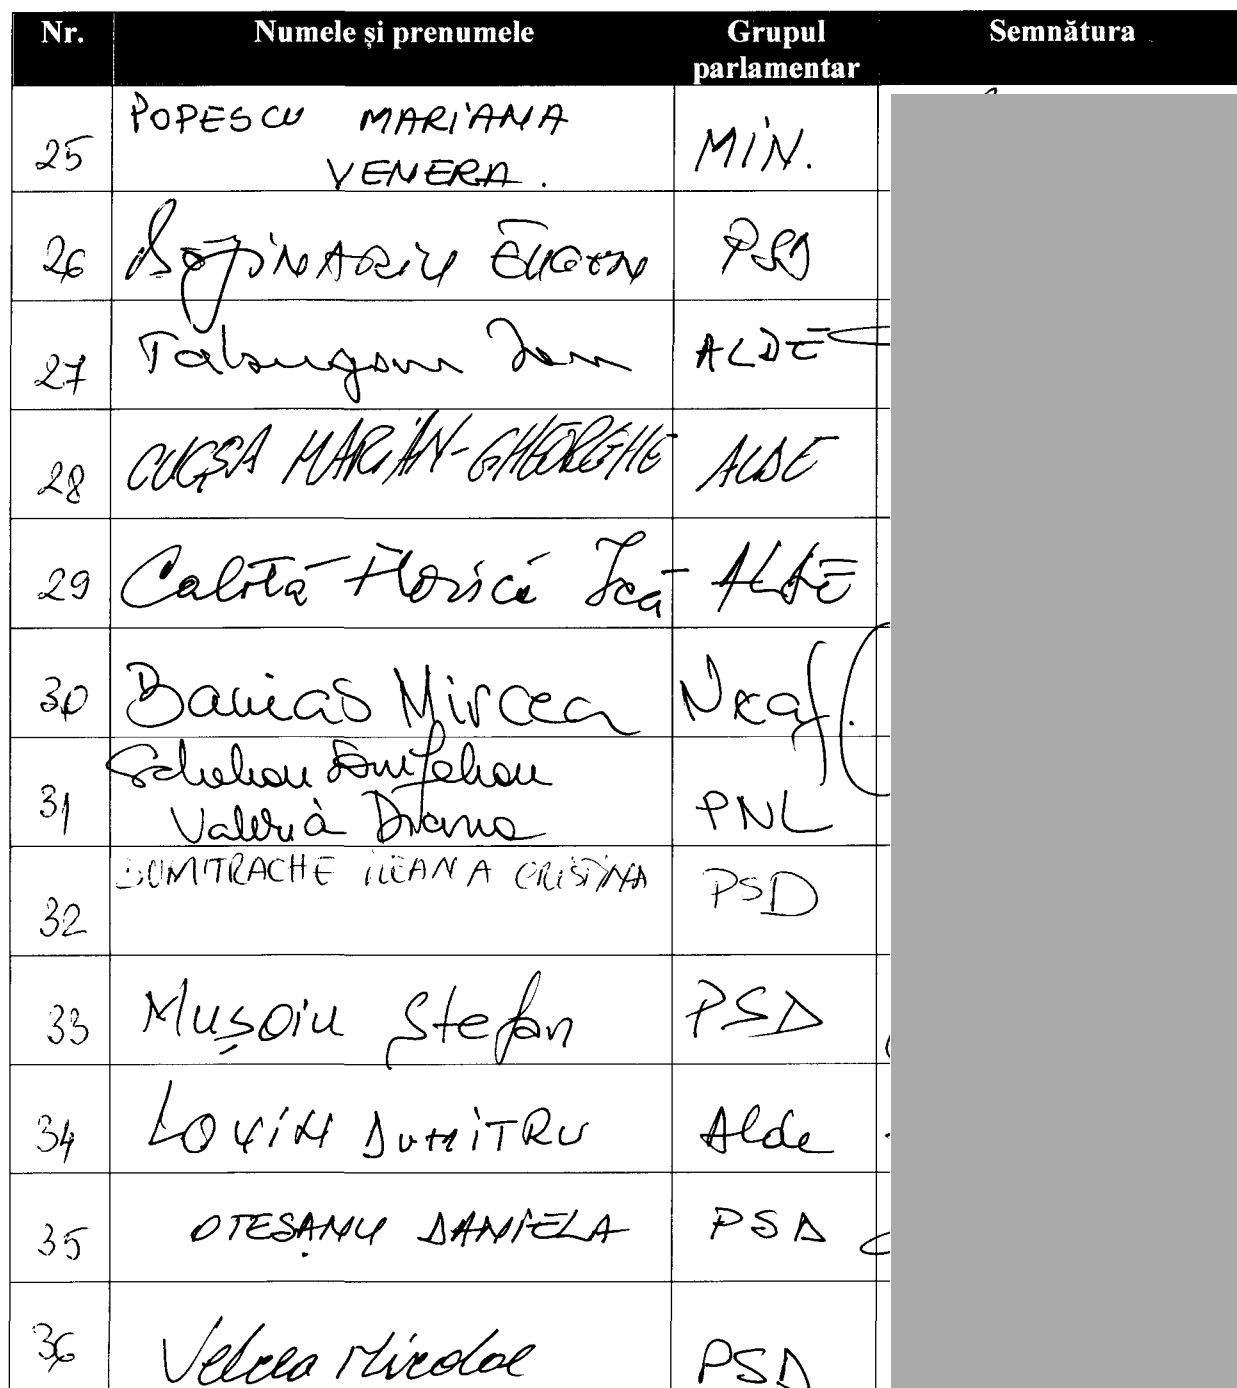 Nr. Numele și prenumele Grupul parlamentar Semnătura
25 POPESCU MARIANA VENERA. MIN.
26 BOȚINARIU EUGEN PSD
27 Tabugan Ion ALDE
28 CUCȘA MARIAN-GHEORGHE ALDE
29 Calotă Florică Ică ALDE
30 Banias Mircea Neaf.
31 Schelean
Valeria Diana PNL
32 DUMITRACHE ILEANA CRISTINA PSD
33 Mușoiu Ștefan PSD
34 LOVIN DUMITRU Alde
35 OTEȘANU DANIELA PSD
36 Velcea Nicolae PSD